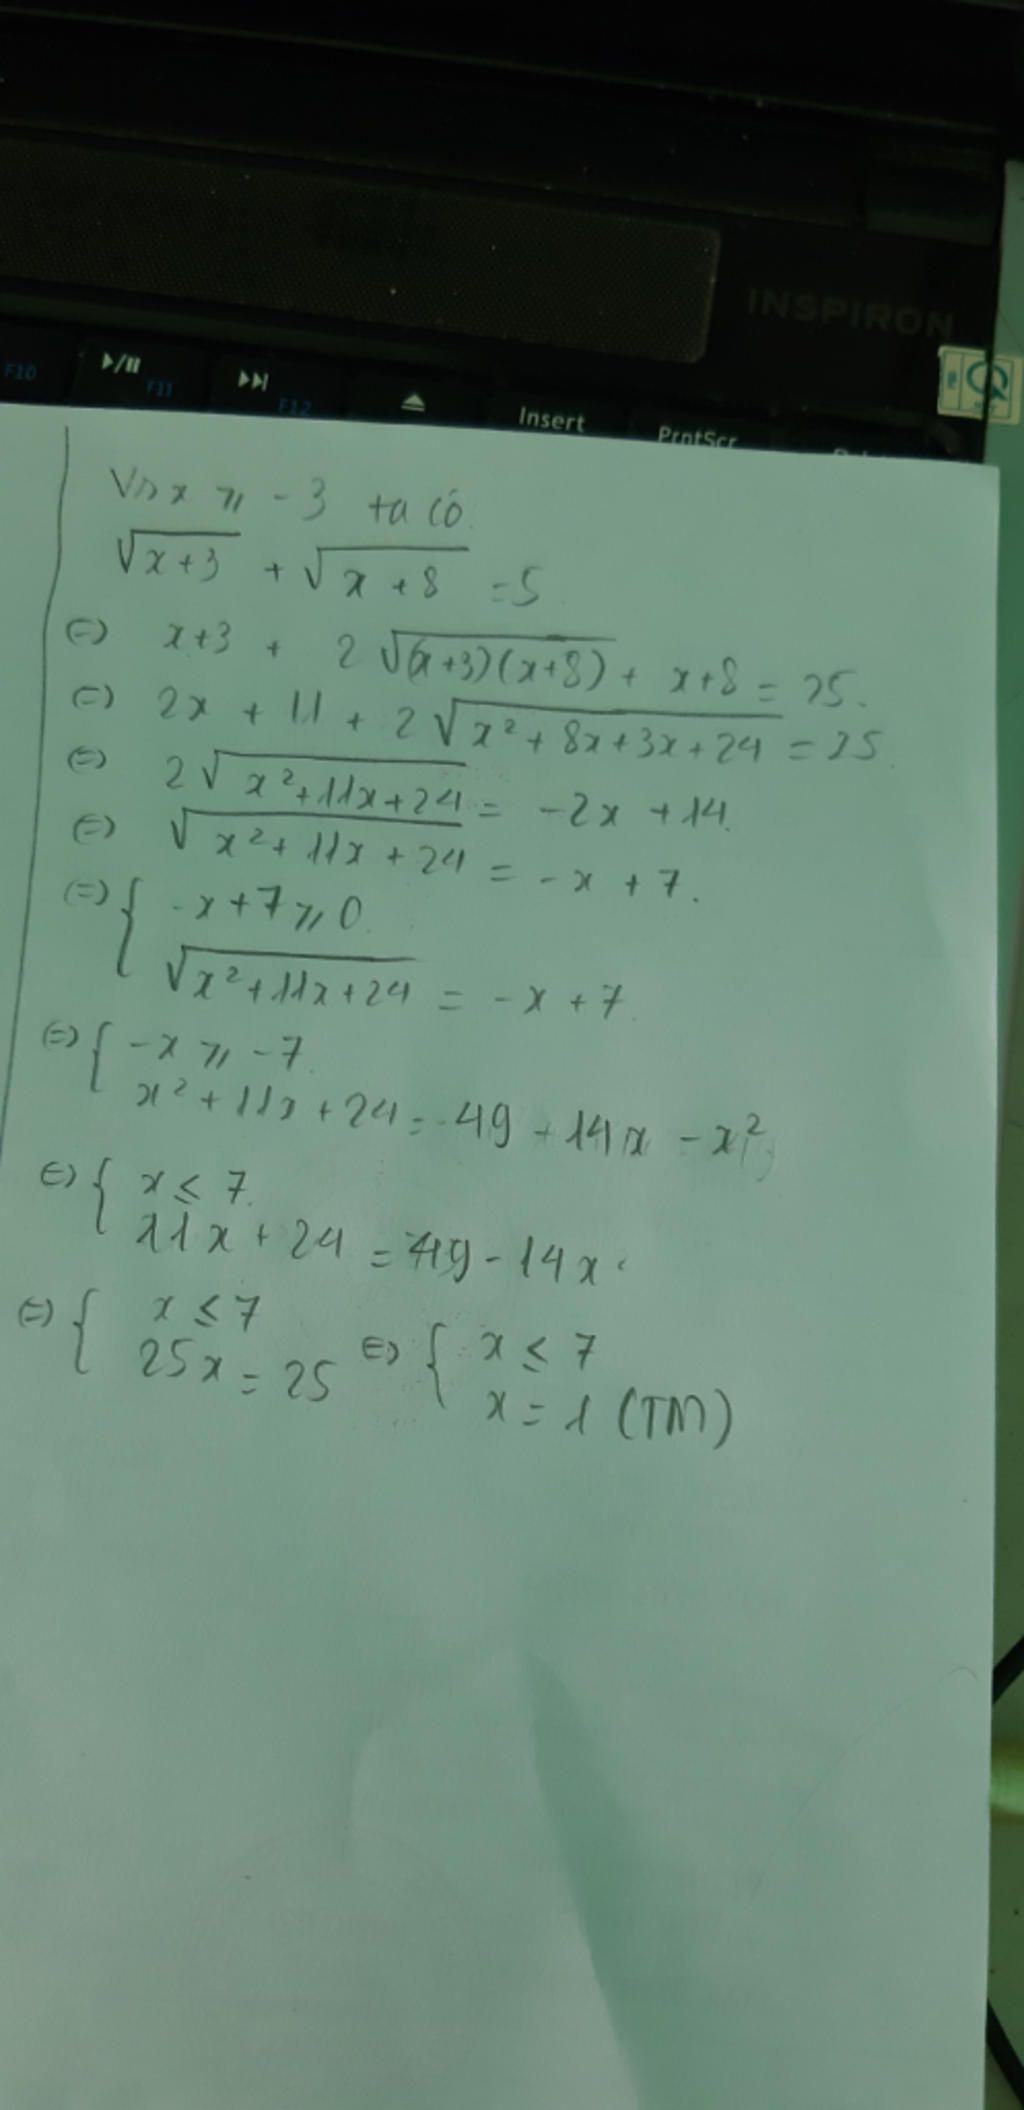 INSPIRON
F10 ▶/II F11 ▶▶I F12 Insert PrntScr
Với x ≥ -3 ta có
√(x+3) + √(x+8) = 5
(=) x+3 + 2√((x+3)(x+8)) + x+8 = 25.
(=) 2x + 11 + 2√(x² + 8x + 3x + 24) = 25
(=) 2√(x²+11x+24) = -2x + 14.
(=) √(x²+11x+24) = -x + 7.
(=) { -x+7 ≥ 0
√(x²+11x+24) = -x + 7
(=) { -x ≥ -7
x²+11x+24 = 49 - 14x - x²
(=) { x ≤ 7
11x + 24 = 49 - 14x
(=) { x ≤ 7 (=) { x ≤ 7
25x = 25 x = 1 (TM)